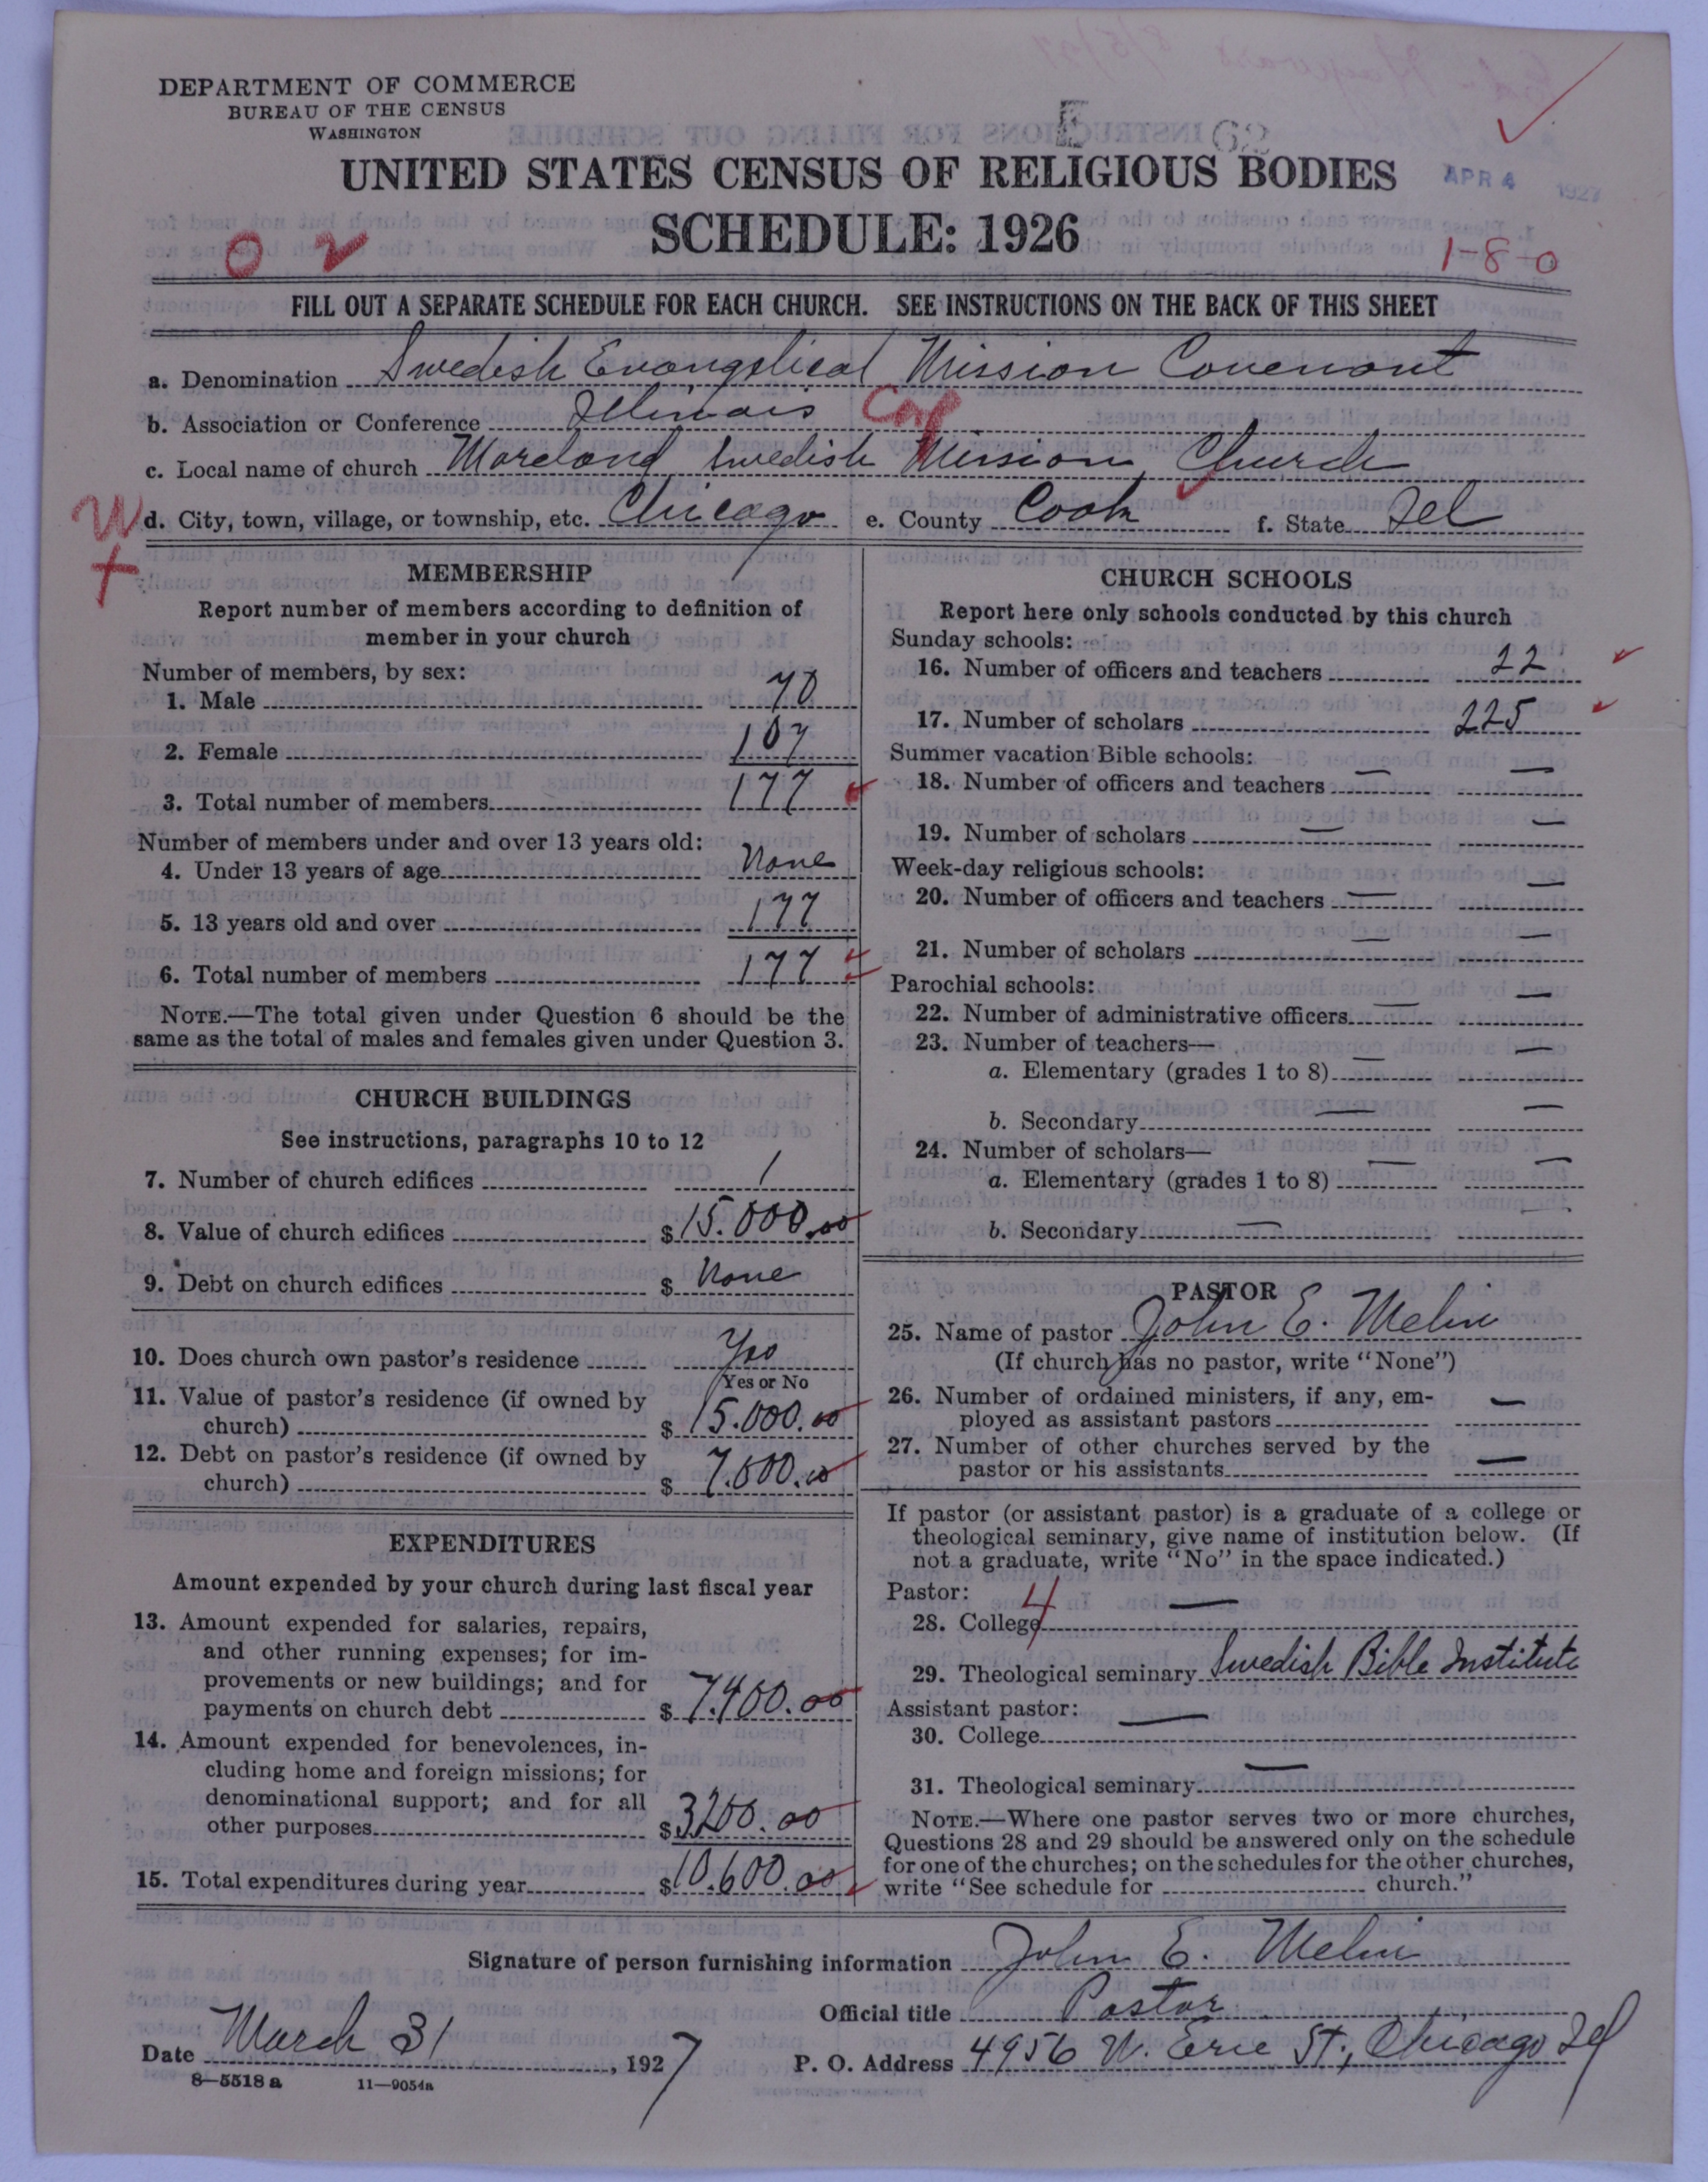 DEPARTMENT OF COMMERCE
BUREAU OF THE CENSUS
WASHINGTON
E 62
UNITED STATES CENSUS OF RELIGIOUS BODIES
APR 4 1927
SCHEDULE: 1926
O 2
1-8-0
FILL OUT A SEPARATE SCHEDULE FOR EACH CHURCH. SEE INSTRUCTIONS ON THE BACK OF THIS SHEET
a. Denomination Swedish Evangelical Mission Covenant
b. Association or Conference Illinois
c. Local name of church Moreland Swedish Mission Church
W d. City, town, village, or township, etc. Chicago e. County Cook f. State Ill
+
MEMBERSHIP
Report number of members according to definition of
member in your church
Number of members, by sex:
1. Male 70
2. Female 107
3. Total number of members 177
Number of members under and over 13 years old:
4. Under 13 years of age None
5. 13 years old and over 177
6. Total number of members 177
NOTE.—The total given under Question 6 should be the
same as the total of males and females given under Question 3.
CHURCH BUILDINGS
See instructions, paragraphs 10 to 12
7. Number of church edifices 1
8. Value of church edifices $15.000.00
9. Debt on church edifices $ None
10. Does church own pastor's residence Yes
Yes or No
11. Value of pastor's residence (if owned by
church) $15.000.00
12. Debt on pastor's residence (if owned by
church) $7.000.00
EXPENDITURES
Amount expended by your church during last fiscal year
13. Amount expended for salaries, repairs,
and other running expenses; for im-
provements or new buildings; and for
payments on church debt $7.400.00
14. Amount expended for benevolences, in-
cluding home and foreign missions; for
denominational support; and for all
other purposes $3200.00
15. Total expenditures during year $10.600.00
CHURCH SCHOOLS
Report here only schools conducted by this church
Sunday schools:
16. Number of officers and teachers 22
17. Number of scholars 225
Summer vacation Bible schools:
18. Number of officers and teachers —
19. Number of scholars —
Week-day religious schools:
20. Number of officers and teachers —
21. Number of scholars —
Parochial schools:
22. Number of administrative officers —
23. Number of teachers—
a. Elementary (grades 1 to 8) —
b. Secondary —
24. Number of scholars—
a. Elementary (grades 1 to 8) —
b. Secondary —
PASTOR
25. Name of pastor John E. Melin
(If church has no pastor, write "None")
26. Number of ordained ministers, if any, em-
ployed as assistant pastors —
27. Number of other churches served by the
pastor or his assistants —
If pastor (or assistant pastor) is a graduate of a college or
theological seminary, give name of institution below. (If
not a graduate, write "No" in the space indicated.)
Pastor: 4
28. College —
29. Theological seminary Swedish Bible Institute
Assistant pastor:
30. College —
31. Theological seminary —
NOTE.—Where one pastor serves two or more churches,
Questions 28 and 29 should be answered only on the schedule
for one of the churches; on the schedules for the other churches,
write "See schedule for church."
Signature of person furnishing information John E. Melin
Official title Pastor
Date March 31, 1927 P. O. Address 4956 W. Erie St., Chicago Ill
8—5518a 11—9054a